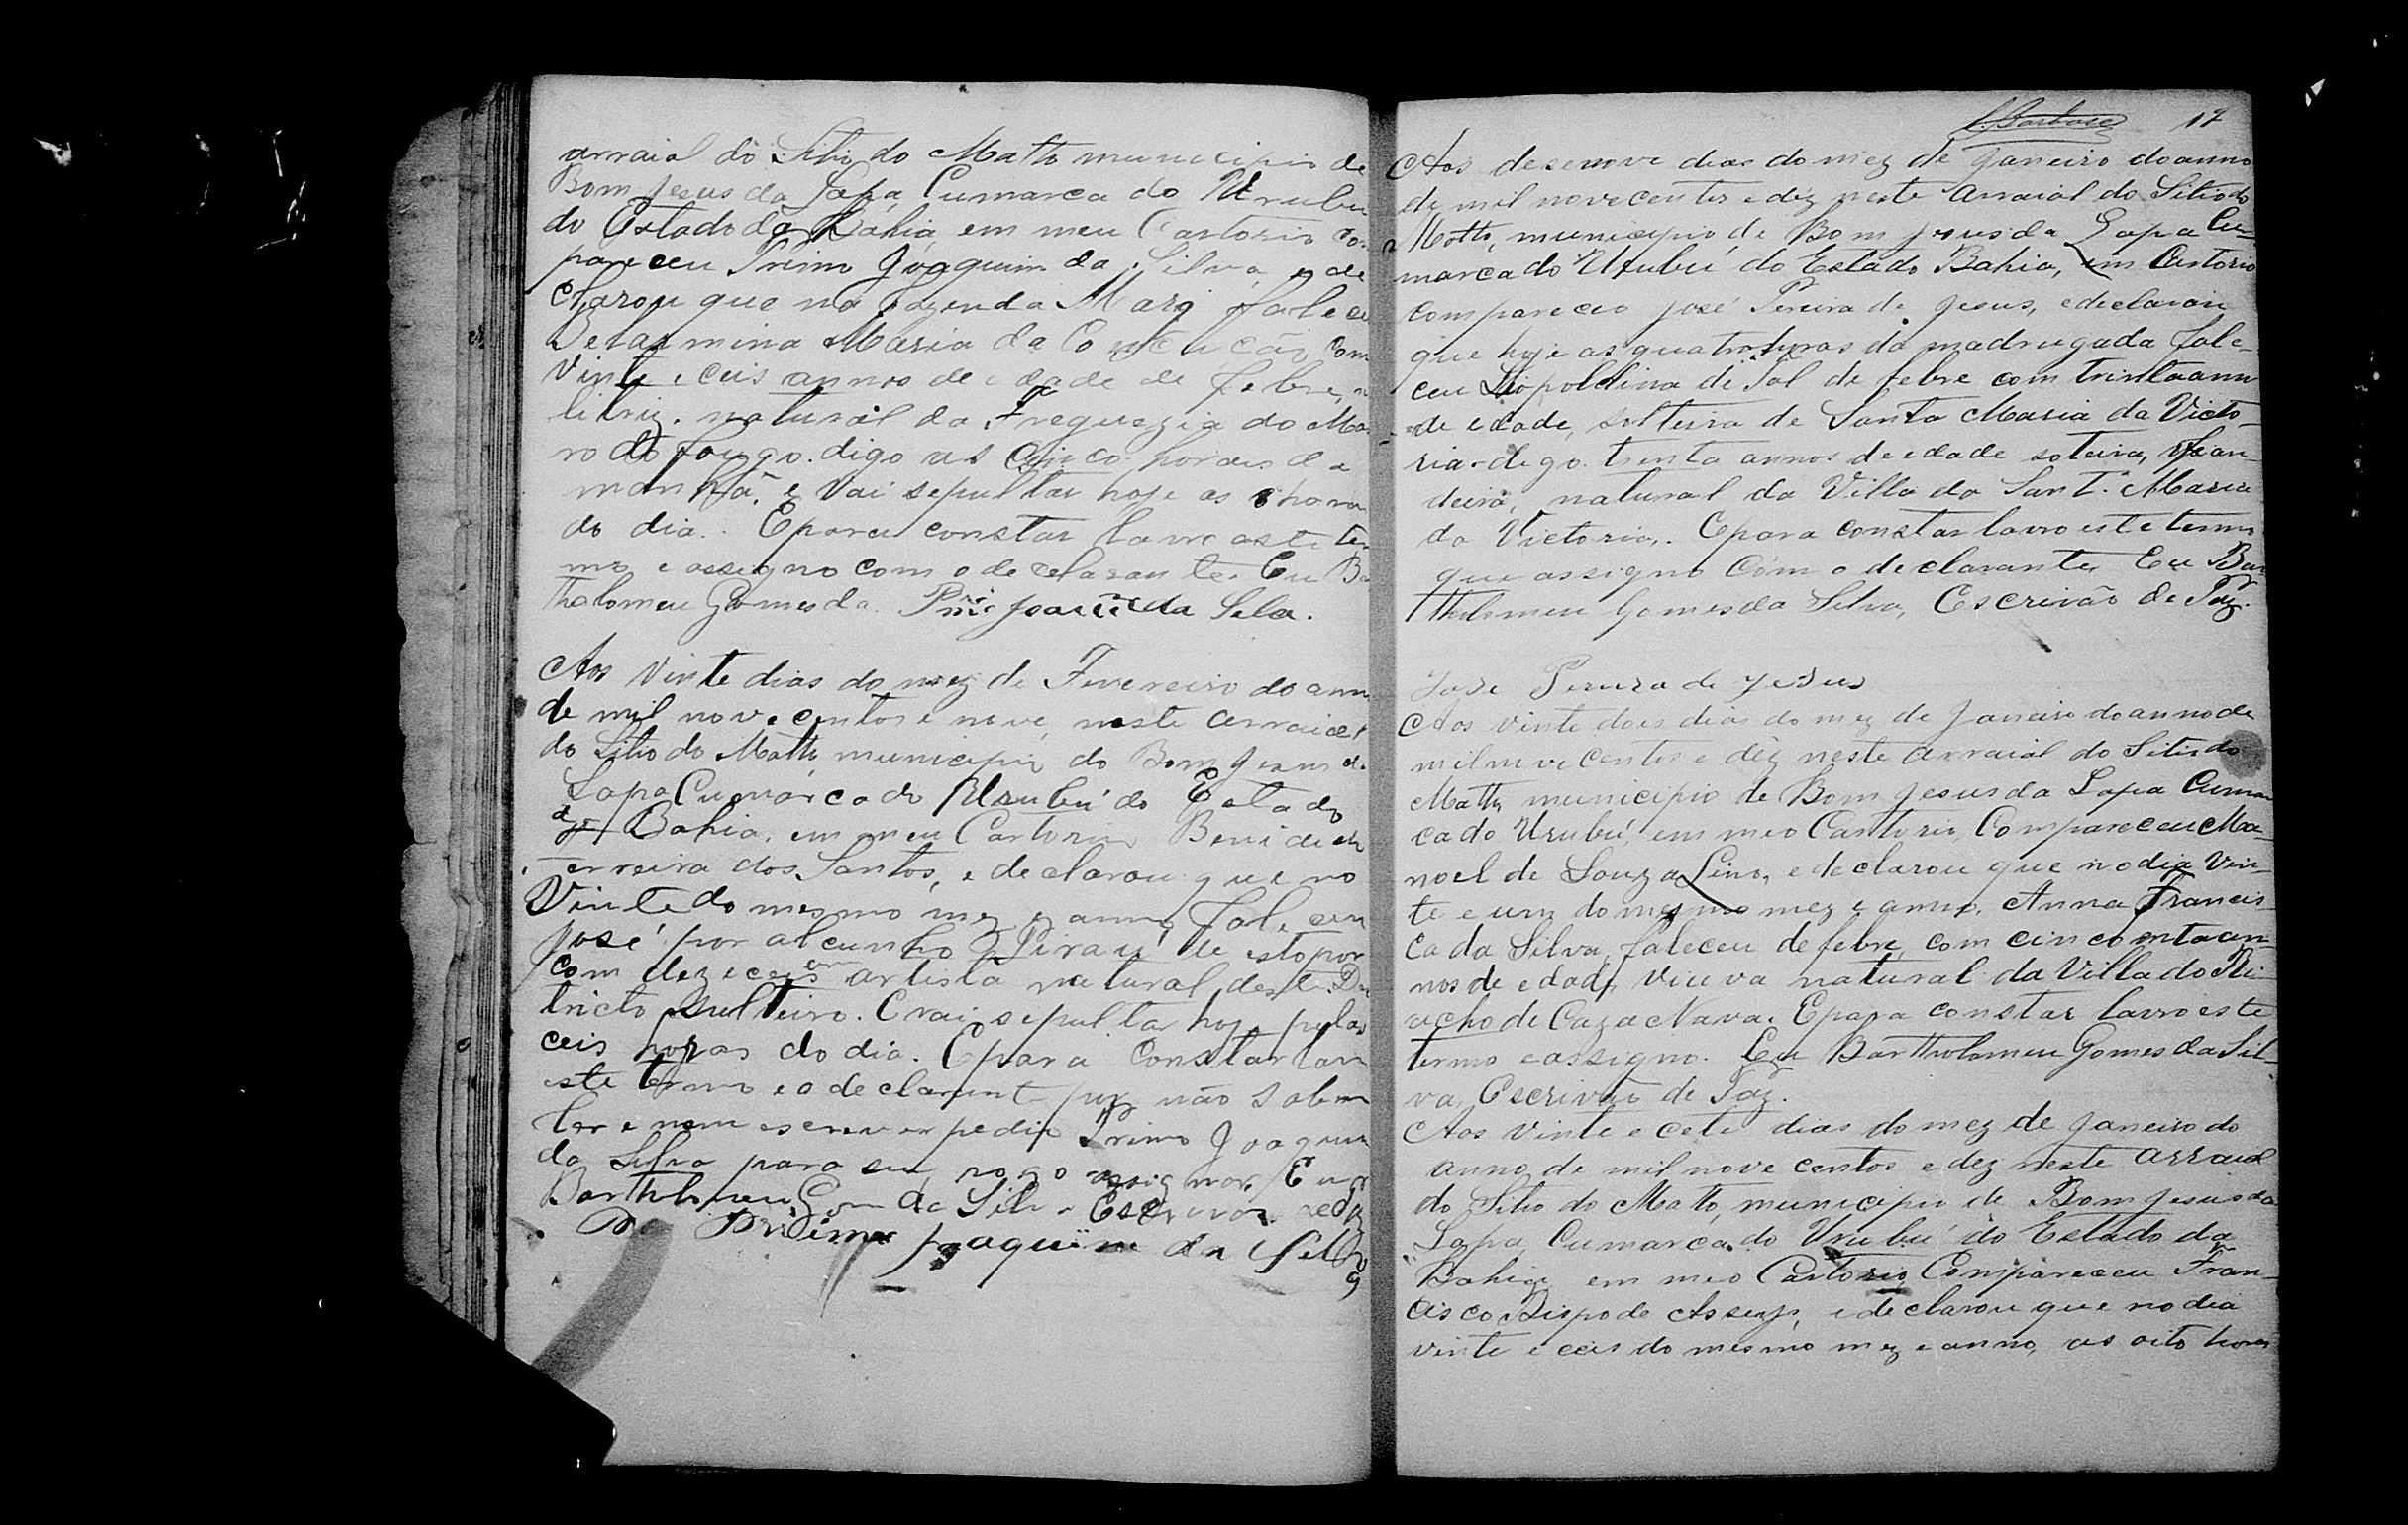 arraial do Sitio do Matto municipio de
Bom Jesus da Lapa, Cumarca do Urubu
do Estado da Bahia, em meu Cartorio com
pareceu Primo Joaquim da Silva, e de
clarou que na fazenda Mary faleceu
Belarmina Maria da Conceicão, com
Vinte e ceis annos de edade de febre, n
natural da Freguezia do Mor
ro do fougo. digo as Cinco horas da
manhã, e vai sepultar hoje as horas
do dia. E para constar lavro este ter
mo e assigno com o declarante. Eu Bar
tholomeu Gomes da
Primo Joaquim da Silva.
Aos Vinte dias do mez de Fevereiro do anno
de mil novecentos e nove, neste arraial
do Sitio do Matto municipio do Bom Jesus da
Lapa Cumarca do Urubú do Estado
da Bahia, em meu Cartorio Benidicto
Ferreira dos Santos, e declarou que no
Vinte do mesmo mez e anno faleceu
José por alcunho Pirau, de estopor
com dezeceis ann artista natural deste Dis
tricto sulteiro. E vai sepultar hoje pelas
ceis horas do dia. E para Constar lavr
este termo e o declarante por não saber
ler e nem escrever pediu Primo Joaquim
da Silva para seu rogo assignar. Eu
Bartholomeu Gom da Silva Escrivão
Primo Joaquim da Silva
Barbosa 17
Aos desenove dias do mez de Janeiro do anno
de mil novecentos e déz neste Arraial do Sitio do
Matto, municipio de Bom Jesus da Lapa Cu-
marca do Urubú do Estado Bahia, em Cartorio
compareceo José Pereira de Jesus, e declarou
que hoje as quatro horas da madrugada fale-
ceu Liopoldina de Tal de febre com trinta ann
de edade, solteira de Santa Maria da Victo-
ria. digo. trinta annos de edade soteira, fian-
deira, natural da Villa da Sant.a Maria
da Victoria. E para constar lavro este termo
que assigno com o declarante. Eu Bar
tholomeu Gomes da Silva, Escrivão de Paz.
José Pereira de Jesus
Aos vinte dois dias do mez de Janeiro do anno de
mil nove centos e déz neste arraial do Sitio do
Matto municipio de Bom Jesus da Lapa Cumar
ca do Urubú, em meo Cartorio, Compareceu Ma-
noel de Souza Lino, e declarou que no dia Vin-
te e um do mesmo mez e anno, Anna Francis-
ca da Silva, faleceu de febre, com cincoenta an-
nos de edade, viuva natural da Villa do Ri-
acho de Caza Nava. E para constar lavro este
termo e assigno. Eu Bartholomeu Gomes da Sil-
va, Escrivão de Paz.
Aos vinte e cete dias do mez de Janeiro do
anno de mil nove centos e dez neste arraial
do Sitio do Matto, municipio de Bom Jesus da
Lapa, Cumarca do Urubú do Estado da
Bahia, em meo Cartorio, Compareceu Fran-
cisco Bispo de Assenço, e declarou que no dia
vinte e ceis do mesmo mez e anno, as oito horas